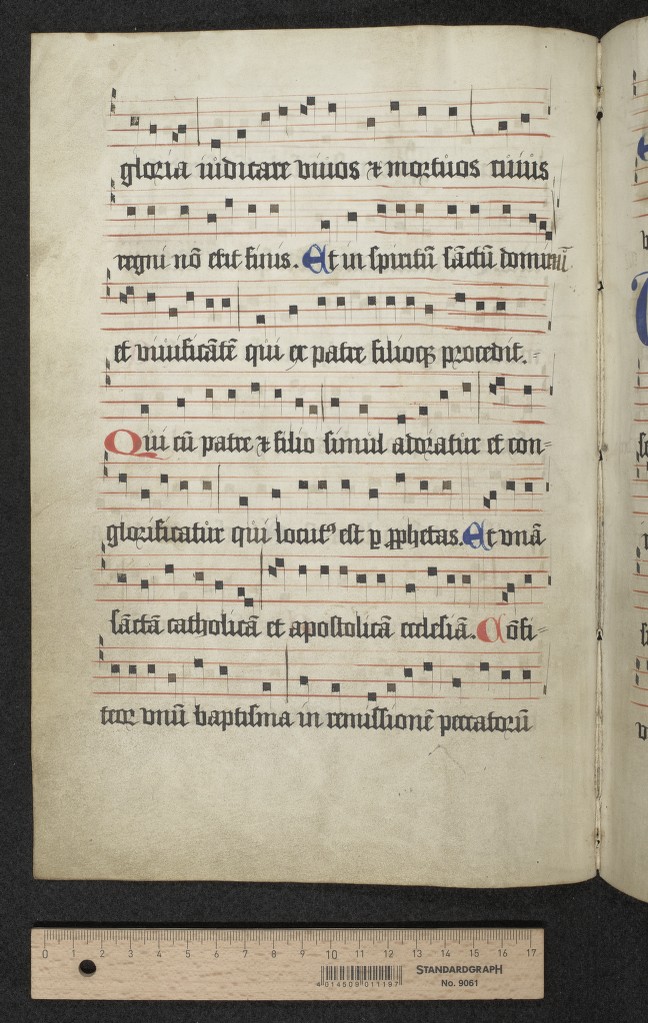 gloria iudicare viuos ⁊ mortuos cuiius
regni nō erit finis. Et in spiritū sāctū dominū
et viuificātē qui ex patre filioqꝫ procedit.
Qui cū patre ⁊ filio simul adoratur et con=
glorificatur qui locutꝰ est ꝑ ꝓphetas. Et vnā
sāctā catholicā et apostolicā ecclesiā. Cōfi=
teor vnū baptisma in remissionē peccatorū
0 1 2 3 4 5 6 7 8 9 10 11 12 13 14 15 16 17
4 014509 011197
STANDARDGRAPH
No. 9061